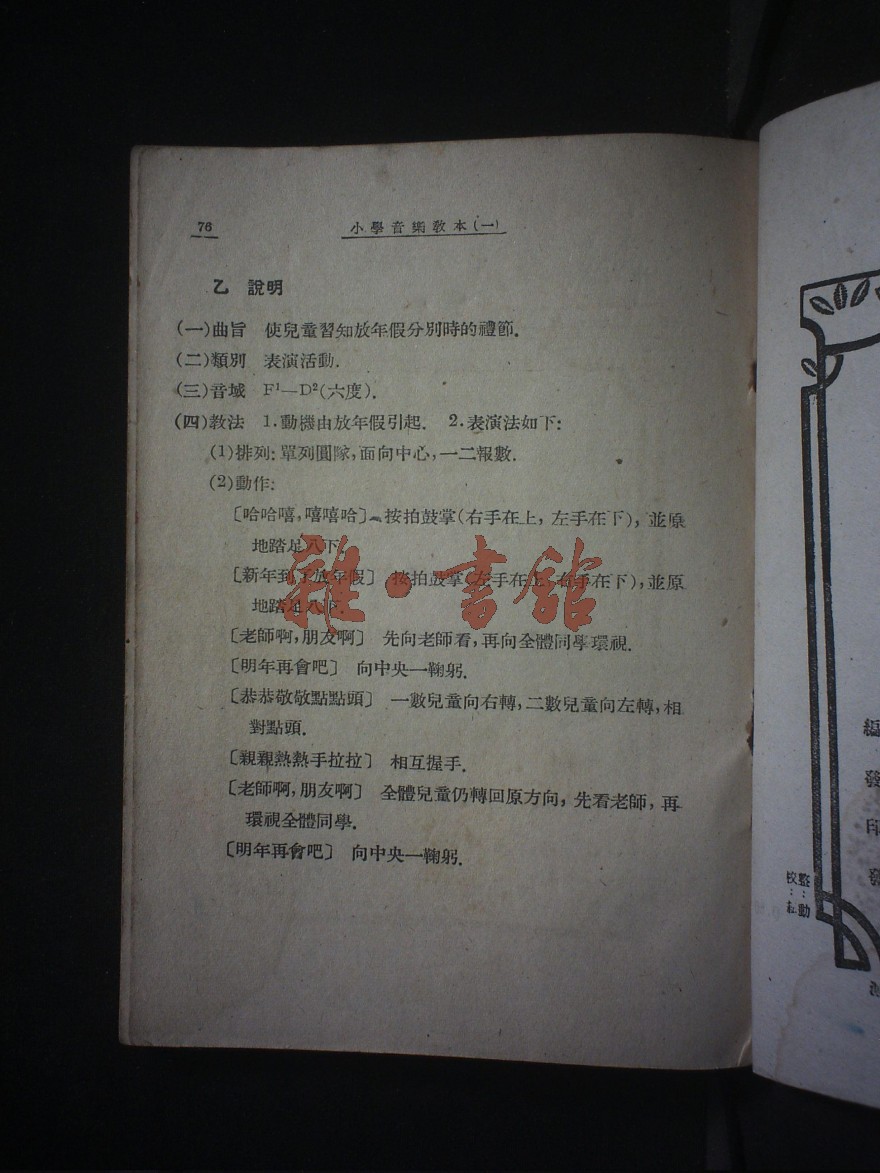 76
小學音樂敎本(一)
乙 說明
(一)曲旨 使兒童習知放年假分別時的禮節.
(二)類別 表演活動.
(三)音域 F¹—D²(六度).
(四)敎法 1.動機由放年假引起. 2.表演法如下:
(1)排列:單列圓隊,面向中心,一二報數.
(2)動作:
〔哈哈嘻,嘻嘻哈〕 按拍鼓掌(右手在上,左手在下),並原
地踏足八下.
〔新年到了放年假〕 按拍鼓掌(左手在上,右手在下),並原
地踏足八下.
〔老師啊,朋友啊〕 先向老師看,再向全體同學環視.
〔明年再會吧〕 向中央一鞠躬.
〔恭恭敬敬點點頭〕 一數兒童向右轉,二數兒童向左轉,相
對點頭.
〔親親熱熱手拉拉〕 相互握手.
〔老師啊,朋友啊〕 全體兒童仍轉回原方向,先看老師,再
環視全體同學.
〔明年再會吧〕 向中央一鞠躬.
雜·書館
編
發
印
發